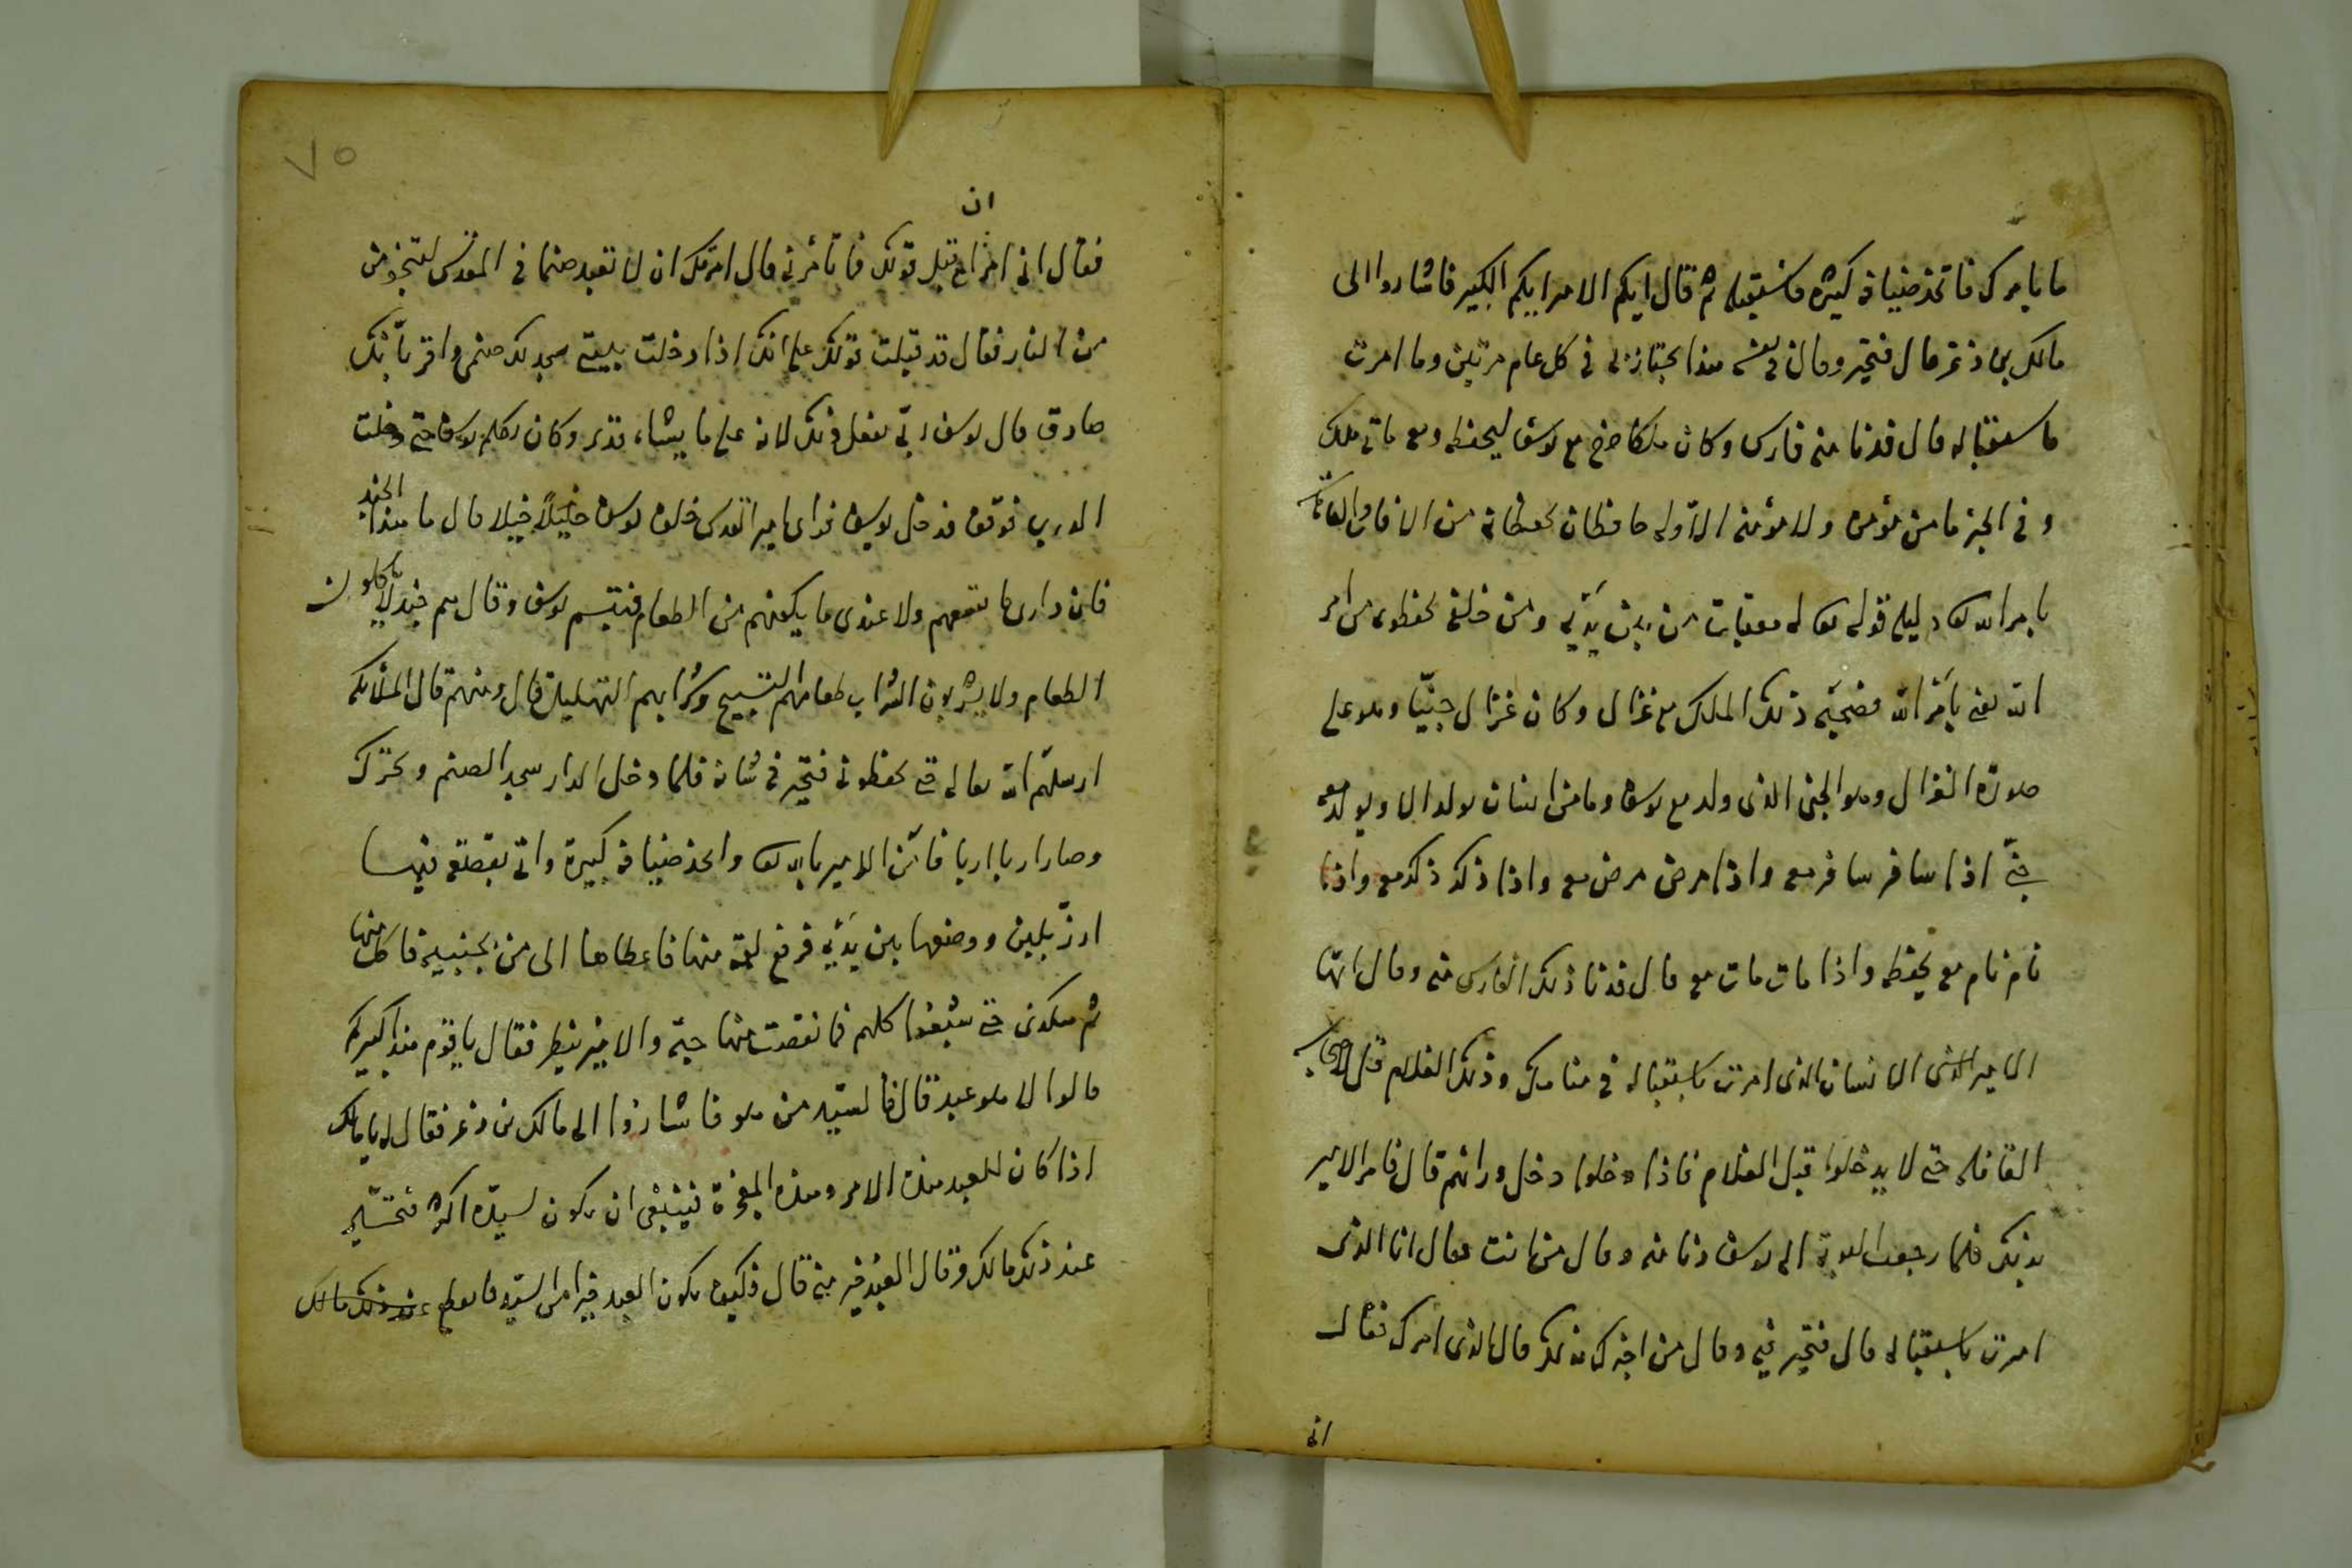 ما يامرك فاتخذ ضيافة كثيرة فاستقبله ثم قال ايكم الامير ايكم الكبير فاشاروا الى
مالك بن ذعر قال فتحير وقال في نفسه هذا يجتاز بى في كل عام مرتين وما امرت
باستقباله قال فدنا منه فارس وكان ملكا خرج مع يوسف ليحفظه ومعه مأتى ملك
وفى الخبر ما من مؤمن ولا مؤمنة الا وله حافظان يحفظانه من الافات والعاهات
بامر الله تعالى دليله قوله تعالى له معقبات من بين يديه ومن خلفه يحفظونه من امر
الله يعنى بامر الله فصحبه ذلك الملك مع غزال وكان غزال جنيا وهو على
صورة الغزال وهو الجنى الذى ولد مع يوسف وما من انسان يولد الا ويولد معه
جنى اذا سافر سافر معه واذا مرض مرض معه واذا ذكر ذكر معه واذا
نام نام معه يحفظه واذا مات مات معه قال فدنا ذلك الفارس منه وقال ايها
الامير الذى الانسان الذى امرت باستقباله في منامك وذلك الغلام قل لاصحاب
القافلة حتى لا يدخلوا قبل الغلام فاذا دخلوا دخل ورائهم قال فامر الامير
بذلك فلما رجعت الى يوسف دنا منه وقال من انت فقال انا الذى
امرت باستقباله قال فتحير فيه وقال من اخبرك بذلك قال الذى امرك فقال
انى
ان
فقال انى امرأ قبل قولك فما تأمرنى قال امرتك ان لا تعبد صنما في المقدس لتنجو من
من النار فقال قد قبلت قولك على انك اذا دخلت بيتى سجد لك صنمى واقر بأنك
صادق قال يوسف ربى يفعل ذلك لانه على ما يشاء قدير وكان يكلم يوسف حتى دخلت
الدرب فوقف فدخل يوسف فرأى امير القدس خلف يوسف خيلا خيلا قال ما هذا الجند
فان دارى لا تسعهم ولا عندى ما يكفيهم من الطعام فتبسم يوسف وقال هم جند لا يأكلون
الطعام ولا يشربون الشراب طعامهم التسبيح وشرابهم التهليل قال ومنهم قال الملائكة
ارسلهم الله تعالى حتى يحفظونى فتحير فى شانه فلما دخل الدار سجد الصنم وتحرك
وصار اربا اربا فآمن الامير بالله تعالى واتخذ ضيافة كبيرة واتى بقصعة فيها
ارز بلبن ووضعها بين يديه فرفع لقمة منها فاعطاها الى من بجنبه فاكل منها
ثم هكذى حتى شبعوا كلهم فما نقصت منها حبة والامير ينظر فقال يا قوم هذا كبيركم
قالوا لا هو عبد قال فالسيد من هو فاشاروا الى مالك بن ذعر فقال له يا مالك
اذا كان للعبد هذا الامر وهذه المعجزة فينبغى ان يكون لسيده اكثر
عند ذلك مالك وقال العبد خير منى قال فكيف يكون العبد خيرا من السيد عند ذلك مالك